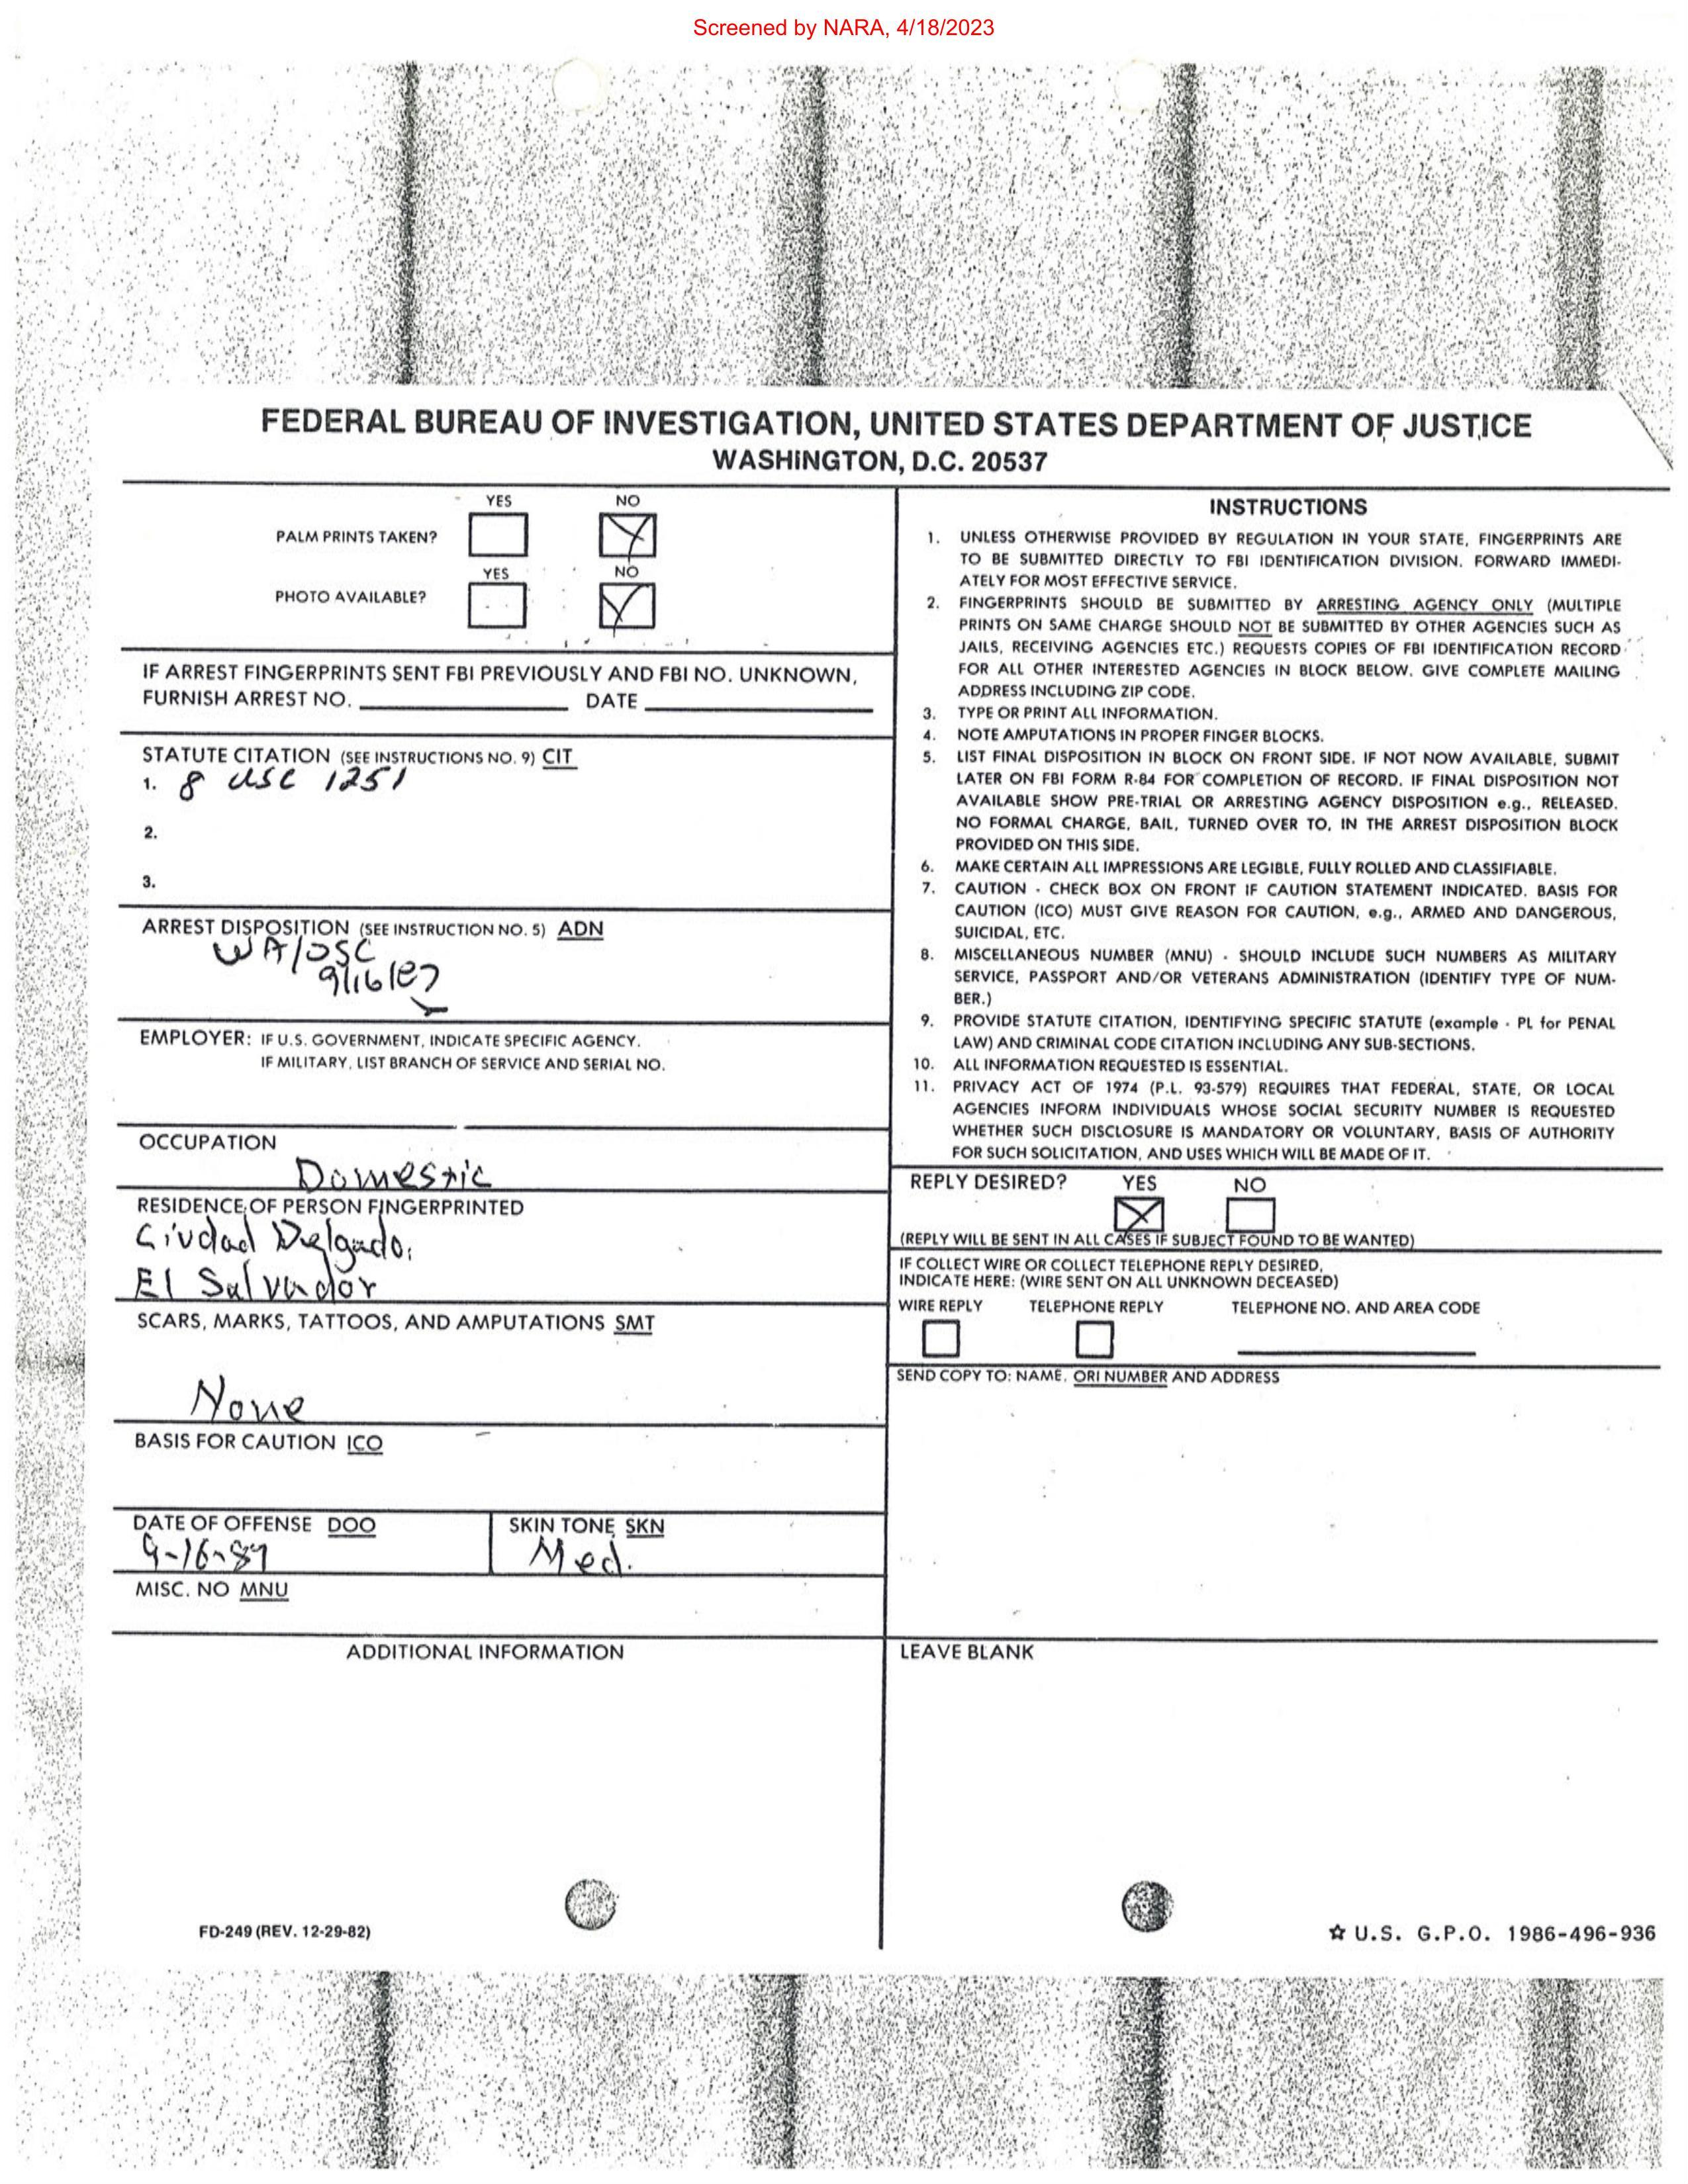 Screened by NARA, 4/18/2023
FEDERAL BUREAU OF INVESTIGATION, UNITED STATES DEPARTMENT OF JUSTICE
WASHINGTON, D.C. 20537
YES NO
PALM PRINTS TAKEN?
YES NO
PHOTO AVAILABLE?
IF ARREST FINGERPRINTS SENT FBI PREVIOUSLY AND FBI NO. UNKNOWN,
FURNISH ARREST NO. DATE
STATUTE CITATION (SEE INSTRUCTIONS NO. 9) CIT
1. 8 USC 1251
2.
3.
ARREST DISPOSITION (SEE INSTRUCTION NO. 5) ADN
WA/OSC
9/16/87
EMPLOYER: IF U.S. GOVERNMENT, INDICATE SPECIFIC AGENCY.
IF MILITARY, LIST BRANCH OF SERVICE AND SERIAL NO.
OCCUPATION
Domestic
RESIDENCE OF PERSON FINGERPRINTED
Ciudad Delgado,
El Salvador
SCARS, MARKS, TATTOOS, AND AMPUTATIONS SMT
None
BASIS FOR CAUTION ICO
DATE OF OFFENSE DOO SKIN TONE SKN
9-16-87 Med.
MISC. NO MNU
ADDITIONAL INFORMATION
INSTRUCTIONS
1. UNLESS OTHERWISE PROVIDED BY REGULATION IN YOUR STATE, FINGERPRINTS ARE
TO BE SUBMITTED DIRECTLY TO FBI IDENTIFICATION DIVISION. FORWARD IMMEDI-
ATELY FOR MOST EFFECTIVE SERVICE.
2. FINGERPRINTS SHOULD BE SUBMITTED BY ARRESTING AGENCY ONLY (MULTIPLE
PRINTS ON SAME CHARGE SHOULD NOT BE SUBMITTED BY OTHER AGENCIES SUCH AS
JAILS, RECEIVING AGENCIES ETC.) REQUESTS COPIES OF FBI IDENTIFICATION RECORD
FOR ALL OTHER INTERESTED AGENCIES IN BLOCK BELOW. GIVE COMPLETE MAILING
ADDRESS INCLUDING ZIP CODE.
3. TYPE OR PRINT ALL INFORMATION.
4. NOTE AMPUTATIONS IN PROPER FINGER BLOCKS.
5. LIST FINAL DISPOSITION IN BLOCK ON FRONT SIDE. IF NOT NOW AVAILABLE, SUBMIT
LATER ON FBI FORM R-84 FOR COMPLETION OF RECORD. IF FINAL DISPOSITION NOT
AVAILABLE SHOW PRE-TRIAL OR ARRESTING AGENCY DISPOSITION e.g., RELEASED,
NO FORMAL CHARGE, BAIL, TURNED OVER TO, IN THE ARREST DISPOSITION BLOCK
PROVIDED ON THIS SIDE.
6. MAKE CERTAIN ALL IMPRESSIONS ARE LEGIBLE, FULLY ROLLED AND CLASSIFIABLE.
7. CAUTION - CHECK BOX ON FRONT IF CAUTION STATEMENT INDICATED. BASIS FOR
CAUTION (ICO) MUST GIVE REASON FOR CAUTION, e.g., ARMED AND DANGEROUS,
SUICIDAL, ETC.
8. MISCELLANEOUS NUMBER (MNU) - SHOULD INCLUDE SUCH NUMBERS AS MILITARY
SERVICE, PASSPORT AND/OR VETERANS ADMINISTRATION (IDENTIFY TYPE OF NUM-
BER.)
9. PROVIDE STATUTE CITATION, IDENTIFYING SPECIFIC STATUTE (example - PL for PENAL
LAW) AND CRIMINAL CODE CITATION INCLUDING ANY SUB-SECTIONS.
10. ALL INFORMATION REQUESTED IS ESSENTIAL.
11. PRIVACY ACT OF 1974 (P.L. 93-579) REQUIRES THAT FEDERAL, STATE, OR LOCAL
AGENCIES INFORM INDIVIDUALS WHOSE SOCIAL SECURITY NUMBER IS REQUESTED
WHETHER SUCH DISCLOSURE IS MANDATORY OR VOLUNTARY, BASIS OF AUTHORITY
FOR SUCH SOLICITATION, AND USES WHICH WILL BE MADE OF IT.
REPLY DESIRED? YES NO
(REPLY WILL BE SENT IN ALL CASES IF SUBJECT FOUND TO BE WANTED)
IF COLLECT WIRE OR COLLECT TELEPHONE REPLY DESIRED,
INDICATE HERE: (WIRE SENT ON ALL UNKNOWN DECEASED)
WIRE REPLY TELEPHONE REPLY TELEPHONE NO. AND AREA CODE
SEND COPY TO: NAME, ORI NUMBER AND ADDRESS
LEAVE BLANK
FD-249 (REV. 12-29-82)
☆ U.S. G.P.O. 1986-496-936